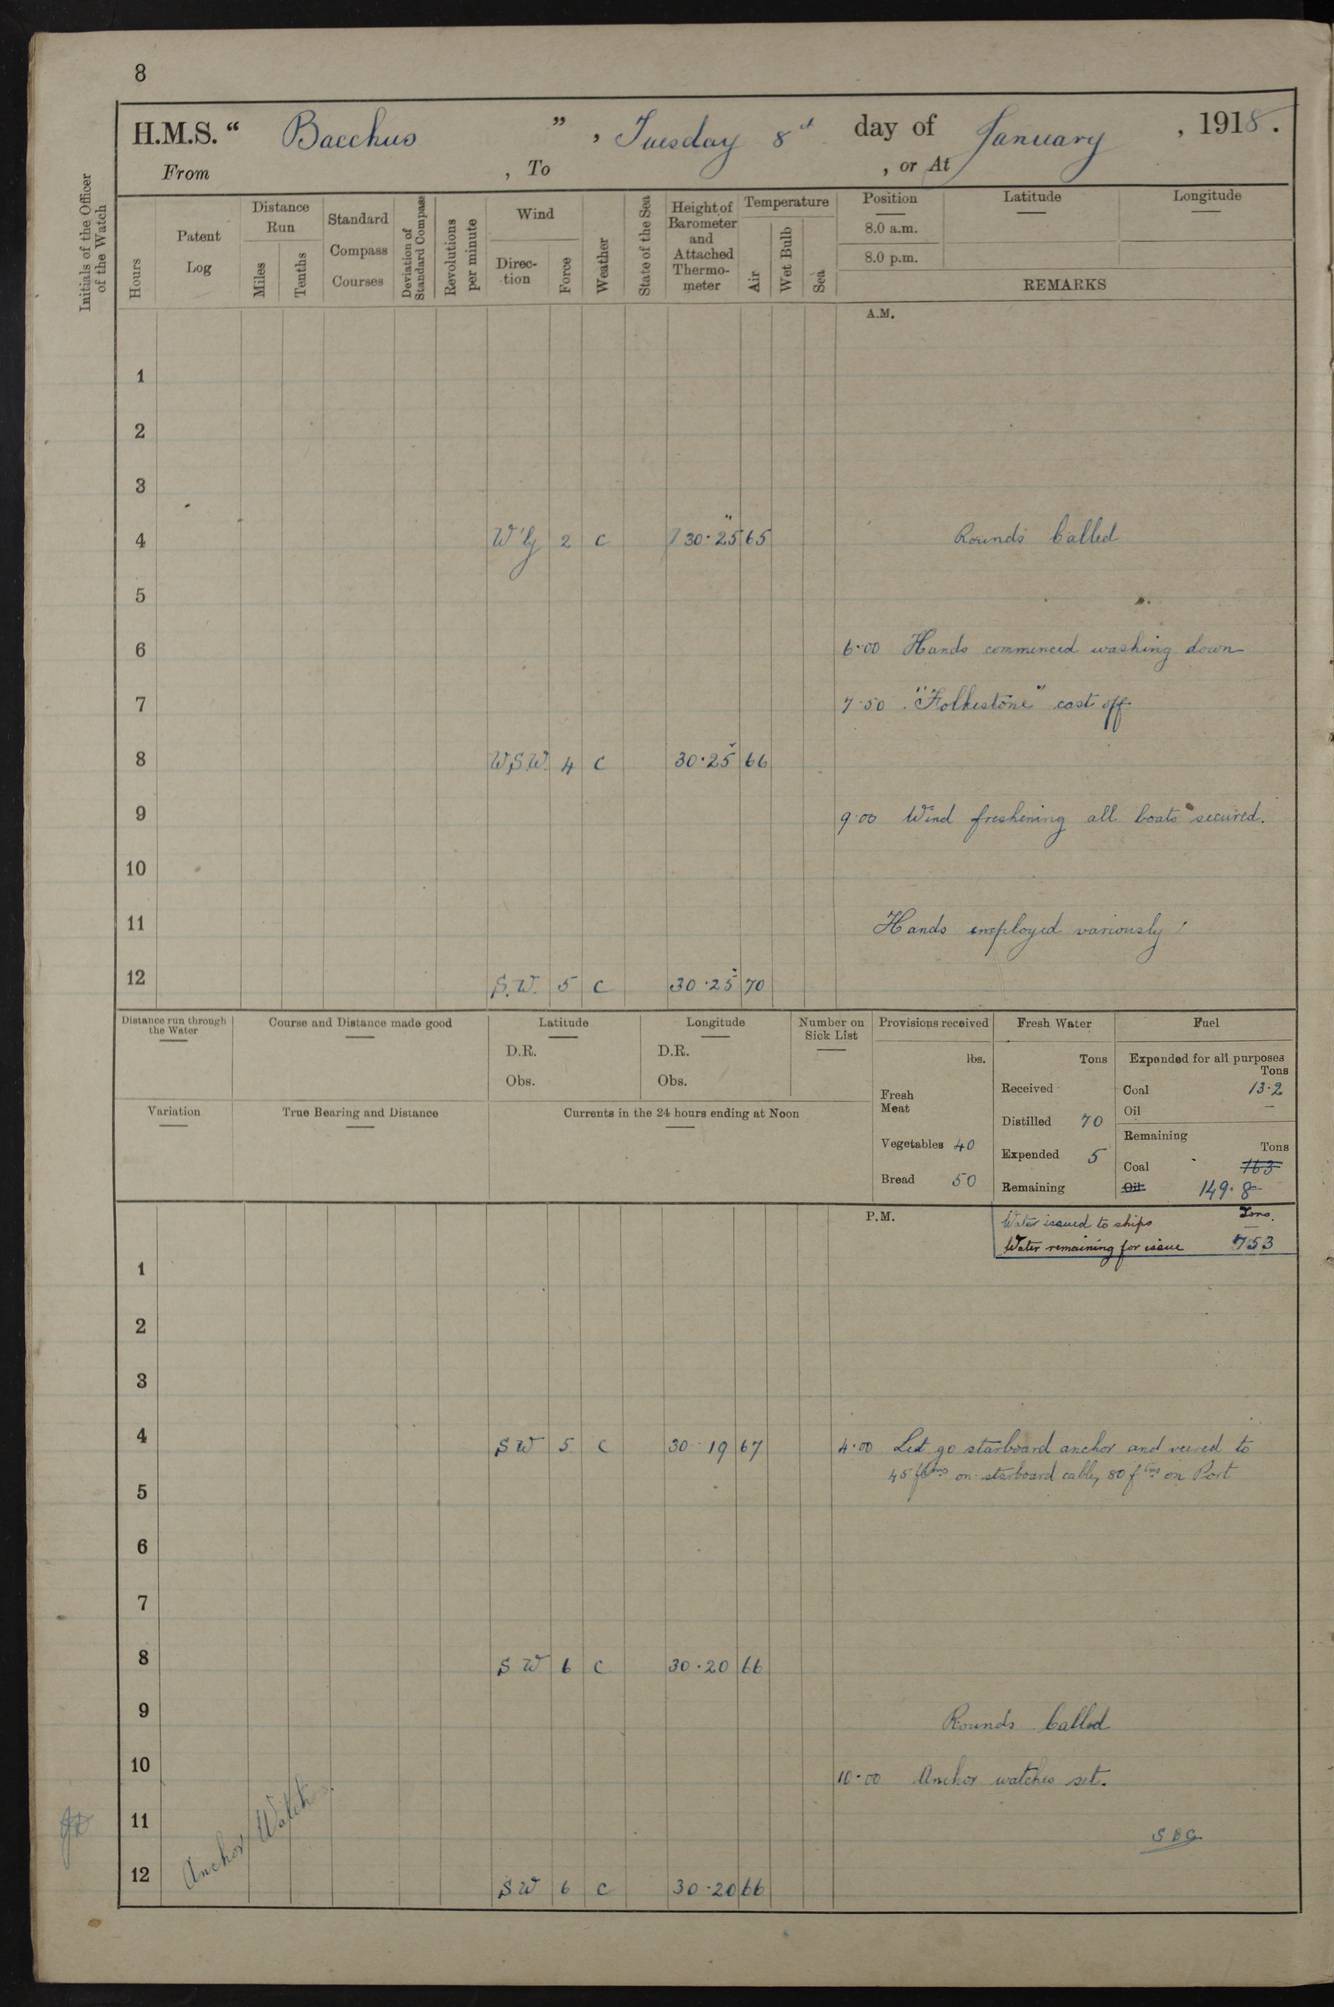 8
H.M.S. " Bacchus ", Tuesday 8th day of January, 1918.
From , To , or At
Initials of the Officer of the Watch
Hours
Patent Log
Distance Run
Miles
Tenths
Standard Compass Courses
Deviation of Standard Compass
Revolutions per minute
Wind
Direction
Force
Weather
State of the Sea
Height of Barometer and Attached Thermometer
Temperature
Air
Wet Bulb
Sea
Position
8.0 a.m.
8.0 p.m.
Latitude
Longitude
REMARKS
A.M.
1
2
3
4 W'ly 2 c 30.25 65 Rounds Called
5
6 6.00 Hands commenced washing down
7 7.50 "Folkestone" cast off
8 W.S.W. 4 c 30.25 66
9 9.00 Wind freshening all boats secured.
10
11 Hands employed variously
12 S.W. 5 c 30.25 70
Distance run through the Water
Course and Distance made good
Latitude
D.R.
Obs.
Longitude
D.R.
Obs.
Number on Sick List
Provisions received
lbs.
Fresh Meat
Vegetables 40
Bread 50
Fresh Water
Tons
Received
Distilled 70
Expended 5
Remaining
Fuel
Expended for all purposes
Tons
Coal 13.2
Oil –
Remaining
Tons
Coal 163
Oil 149.8
Variation
True Bearing and Distance
Currents in the 24 hours ending at Noon
P.M.
Water issued to ships Tons.
Water remaining for issue 753
1
2
3
4 SW 5 c 30.19 67 4.00 Let go starboard anchor and veered to
45 fthms on starboard cable, 80 fms on Port
5
6
7
8 SW 6 c 30.20 66
9 Rounds Called
10 10.00 Anchor watches set.
11
12 SW 6 c 30.20 66
Anchor Watches.